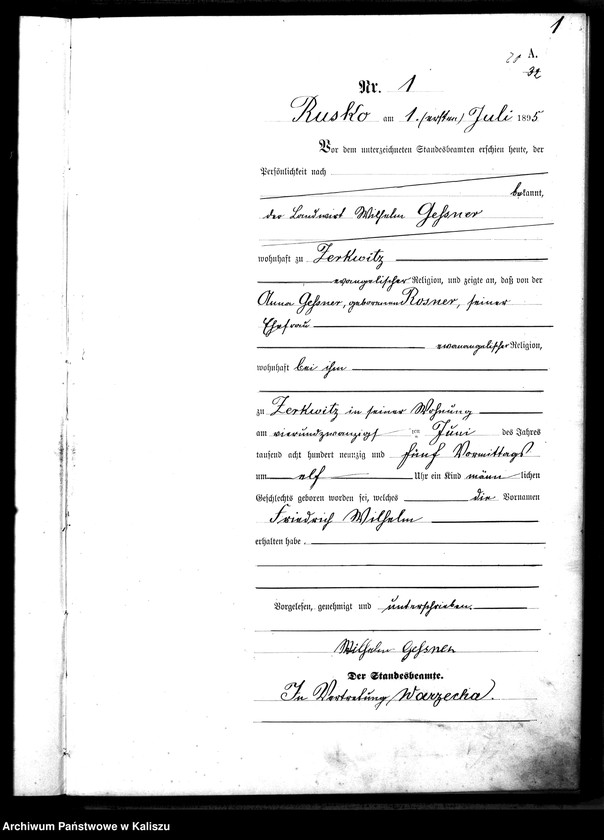 1
A.
Nr. 1
Rusko am 1. (ersten) Juli 1895
Vor dem unterzeichneten Standesbeamten erschien heute, der
Persönlichkeit nach
bekannt,
der Landwirt Wilhelm Gessner
wohnhaft zu Zerkwitz
evangelischer Religion, und zeigte an, daß von der
Anna Gessner, geborenen Rosner, seiner
Ehefrau
evanangelischer Religion,
wohnhaft bei ihm
zu Zerkwitz in seiner Wohnung
am vierundzwanzigst ten Juni des Jahres
tausend acht hundert neunzig und fünf Vormittags
um elf Uhr ein Kind männ lichen
Geschlechts geboren worden sei, welches die Vornamen
Friedrich Wilhelm
erhalten habe.
Vorgelesen, genehmigt und unterschrieben.
Wilhelm Gessner
Der Standesbeamte.
In Vertretung Warzecha.
Archiwum Państwowe w Kaliszu